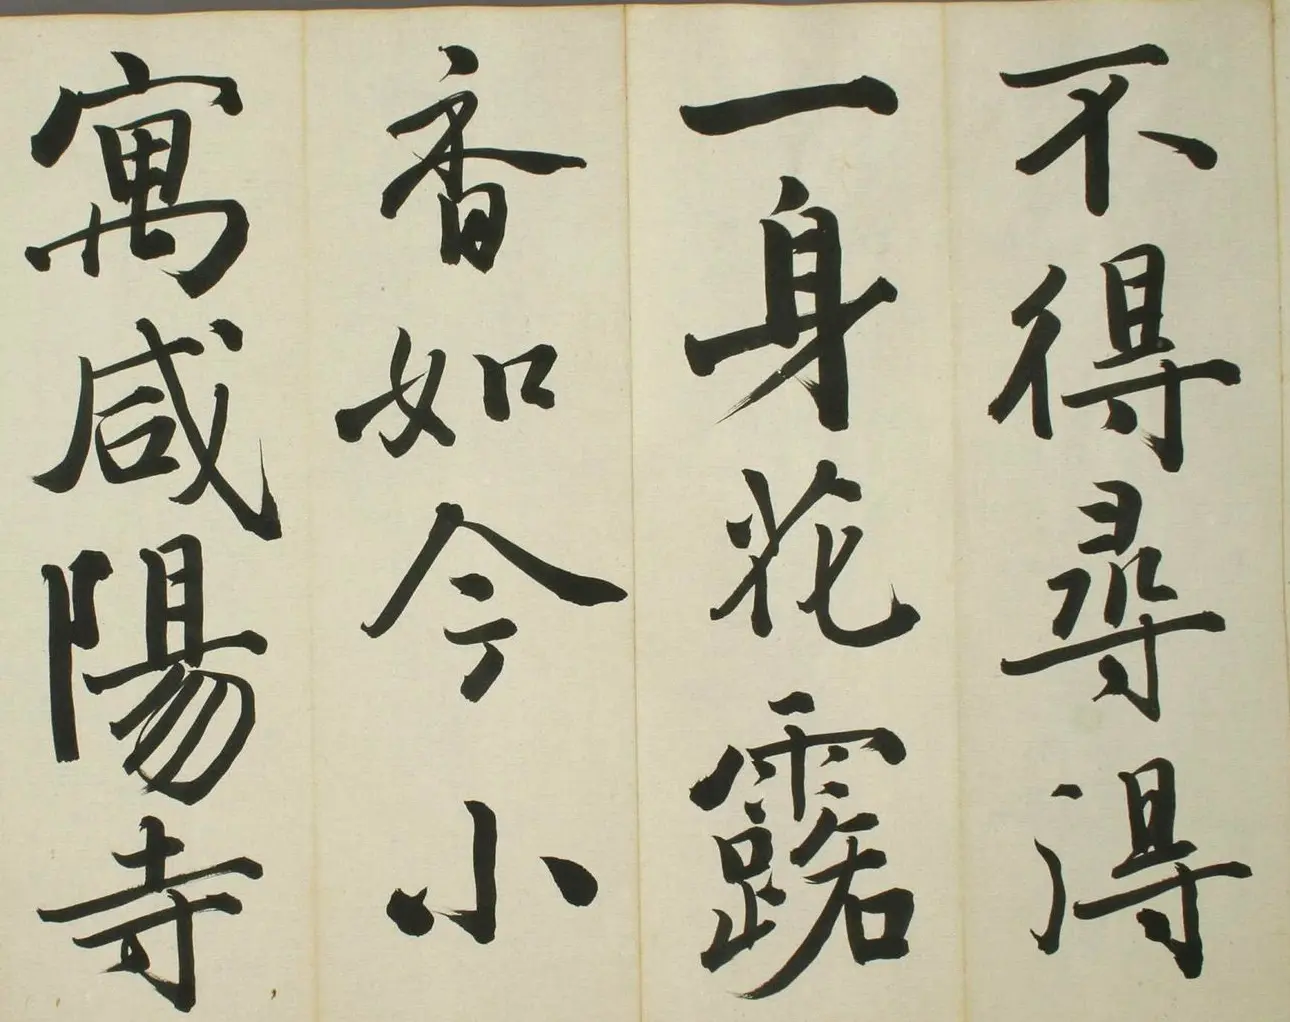 不得尋得
一身花露
香如今小
寓咸陽寺